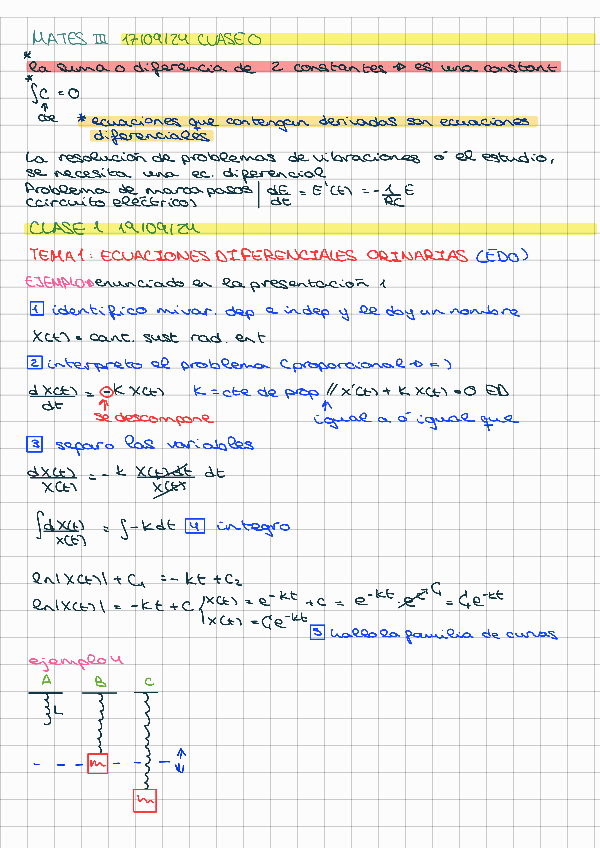 MATES III 17/09/24 CLASE 0
* la suma o diferencia de 2 constantes → es una constant
* ∫C = 0
↑
de * ecuaciones que contengan derivadas son ecuaciones
diferenciales
La resolución de problemas de vibraciones ó el estudio,
se necesita una ec. diferencial
Problema de marca pasos | dE/dt = E'(t) = -1/RC E
(circuito eléctrico)
CLASE 1 19/09/24
TEMA 1: ECUACIONES DIFERENCIALES ORINARIAS (EDO)
EJEMPLO enunciado en la presentación 1
1 identifico mi var. dep e indep y le doy un nombre
X(t) = cant. sust rad. ent
2 interpreto el problema (proporcional → = )
dX(t)/dt = -K X(t) K = cte de prop // X'(t) + K X(t) = 0 ED
↑ se descompone ↑ igual a ó igual que
3 separo las variables
dX(t)/X(t) = -k X(t)dt/X(t) dt
∫dX(t)/X(t) = ∫-kdt 4 integro
ln|X(t)| + C₁ = -kt + C₂
ln|X(t)| = -kt + C { X(t) = e^-kt + C = e^-kt · e^C C₁ = C₁e^-kt
X(t) = C₁e^-kt
5 hallo la familia de curvas
ejemplo 4
A B C
L
m
m